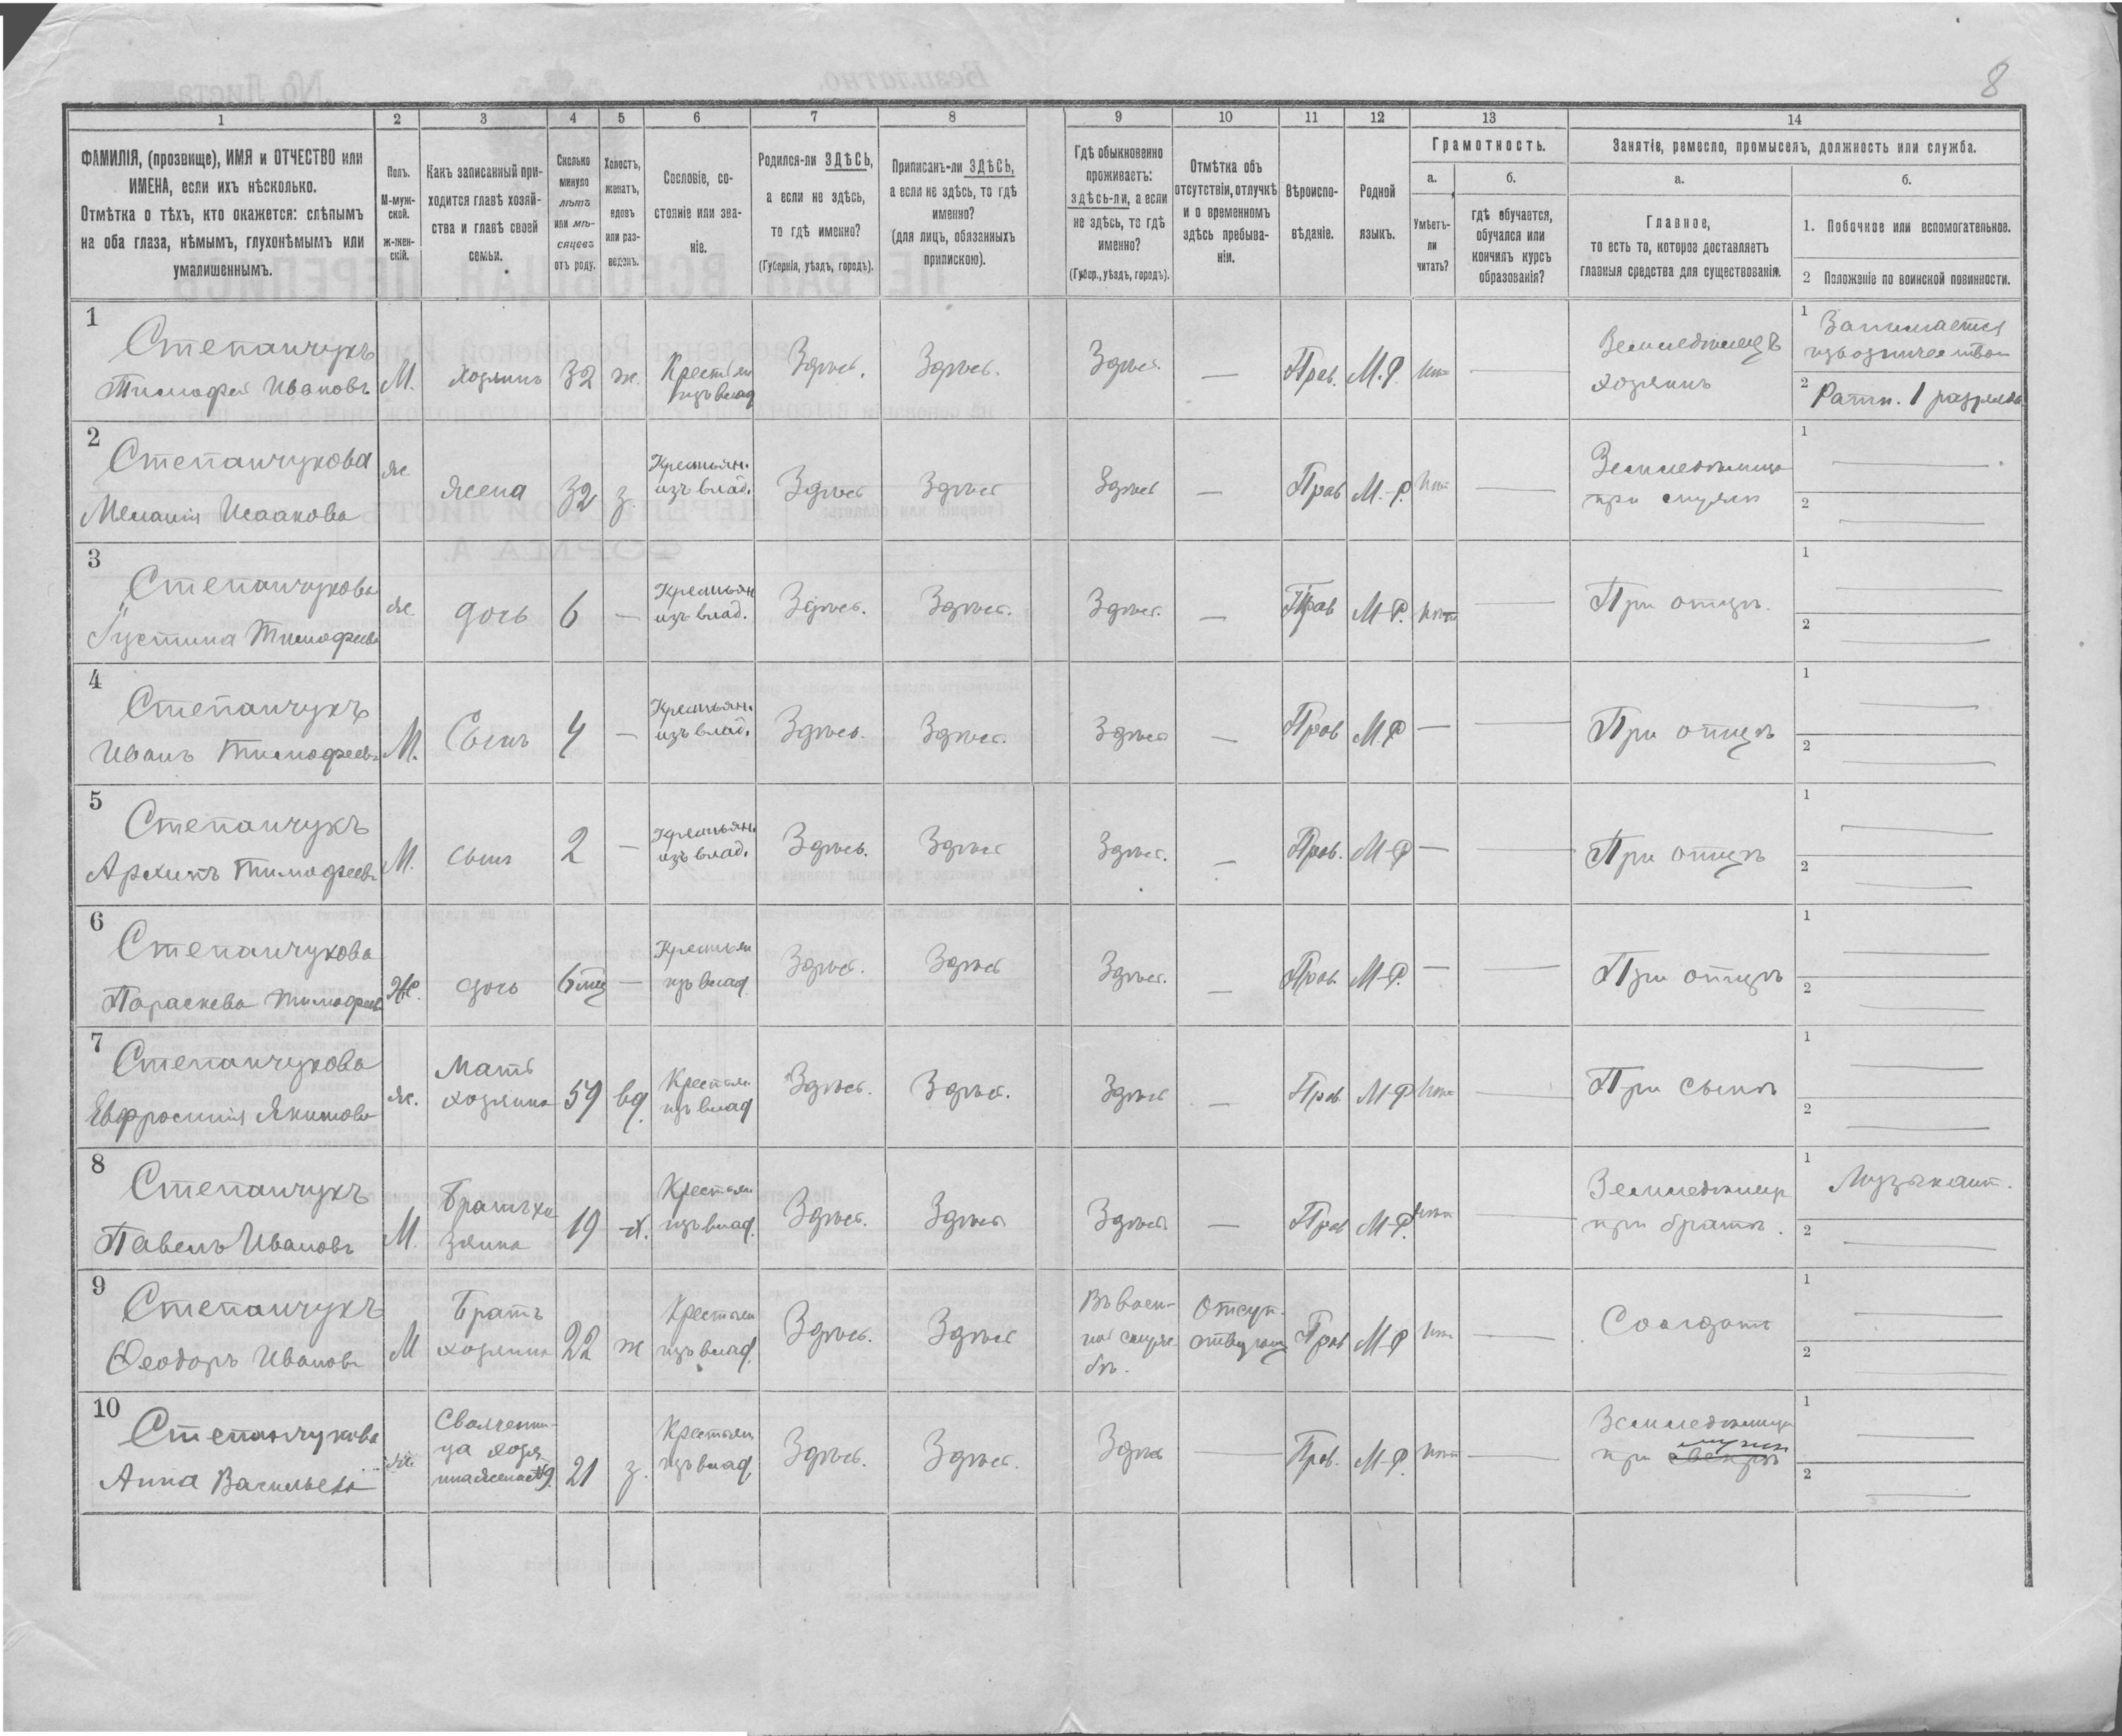 8
1 2 3 4 5 6 7 8 9 10 11 12 13 14
ФАМИЛІЯ, (прозвище), ИМЯ и ОТЧЕСТВО или
ИМЕНА, если ихъ нѣсколько.
Отмѣтка о тѣхъ, кто окажется: слѣпымъ
на оба глаза, нѣмымъ, глухонѣмымъ или
умалишеннымъ.
Полъ.
М-муж-
ской.
ж-жен-
скій.
Какъ записанный при-
ходится главѣ хозяй-
ства и главѣ своей
семьи.
Сколько
минуло
лѣтъ
или мѣ-
сяцевъ
отъ роду.
Холостъ,
женатъ,
вдовъ
или раз-
веденъ.
Сословіе, со-
стояніе или зва-
ніе.
Родился-ли ЗДѢСЬ,
а если не здѣсь,
то гдѣ именно?
(Губернія, уѣздъ, городъ).
Приписанъ-ли ЗДѢСЬ,
а если не здѣсь, то гдѣ
именно?
(для лицъ, обязанныхъ
припискою).
Гдѣ обыкновенно
проживаетъ:
здѣсь-ли, а если
не здѣсь, то гдѣ
именно?
(Губер., уѣздъ, городъ).
Отмѣтка объ
отсутствіи, отлучкѣ
и о временномъ
здѣсь пребыва-
ніи.
Вѣроиспо-
вѣданіе.
Родной
языкъ.
Грамотность.
а.
Умѣетъ-
ли
читать?
б.
гдѣ обучается,
обучался или
кончилъ курсъ
образованія?
Занятіе, ремесло, промыселъ, должность или служба.
а.
Главное,
то есть то, которое доставляетъ
главныя средства для существованія.
б.
1. Побочное или вспомогательное.
2 Положеніе по воинской повинности.
1
Степанчукъ
Тимофей Ивановъ
М.
хозяинъ
32
ж.
Крестьян
изъ влад
Здѣсь.
Здѣсь.
Здѣсь.
—
Прав.
М.Р.
нѣт
—
Земледѣлецъ
хозяинъ
1 Занимается
извозничеством
2 Ратн. 1 разряда
2
Степанчукова
Меланія Исаакова
ж
жена
32
з.
Крестьян.
изъ влад.
Здѣсь
Здѣсь
Здѣсь
—
Прав
М.-Р.
нѣт
—
Земледѣлица
при мужѣ
1 —
2 —
3
Степанчукова
Іустина Тимофеев
ж.
дочь
6
—
Крестьян
изъ влад.
Здѣсь.
Здѣсь.
Здѣсь.
—
Прав
М-Р.
нѣт
—
При отцѣ.
1 —
2 —
4
Степанчукъ
Иванъ Тимофеев
М.
Сынъ
4
—
Крестьян.
изъ влад.
Здѣсь.
Здѣсь.
Здѣсь
—
Прав
М-Р
—
—
При отцѣ
1 —
2 —
5
Степанчукъ
Архипъ Тимофеев
М.
сынъ
2
—
Крестьян.
изъ влад.
Здѣсь.
Здѣсь
Здѣсь.
—
Прав.
М-Р
—
—
При отцѣ
1 —
2 —
6
Степанчукова
Параскева Тимофеев
Ж.
дочь
6 мѣц
—
Крестьян
изъ влад
Здѣсь.
Здѣсь
Здѣсь.
—
Прав
М-Р.
—
—
При отцѣ
1 —
2 —
7
Степанчукова
Евфросинія Якимова
ж.
Мать
хозяина
59
вд.
Крестьян
изъ влад
Здѣсь.
Здѣсь.
Здѣсь
—
Прав
М-Р
нѣт
—
При сынѣ
1 —
2 —
8
Степанчукъ
Павелъ Ивановъ
М.
Братъ хо
зяина
19
х.
Крестьян
изъ влад.
Здѣсь.
Здѣсь
Здѣсь
—
Прав
М-Р.
нѣт
—
Земледѣлец
при братѣ.
1 Музыкант.
2 —
9
Степанчукъ
Ѳеодоръ Иванов
М
Братъ
хозяина
22
ж
Крестьян
изъ влад.
Здѣсь.
Здѣсь
Въ воен-
ной служ
бѣ.
Отсут.
Прав
М-Р
нѣт
—
Солдатъ
1 —
2 —
10
Степанчукова
Анна Васильева
ж
Своячени-
ца хозя
ина жена №9.
21
з.
Крестьян
изъ влад.
Здѣсь.
Здѣсь.
Здѣсь
—
Прав.
М-Р.
нѣт
—
Земледѣлица
мужѣ
при свекрѣ
1 —
2 —